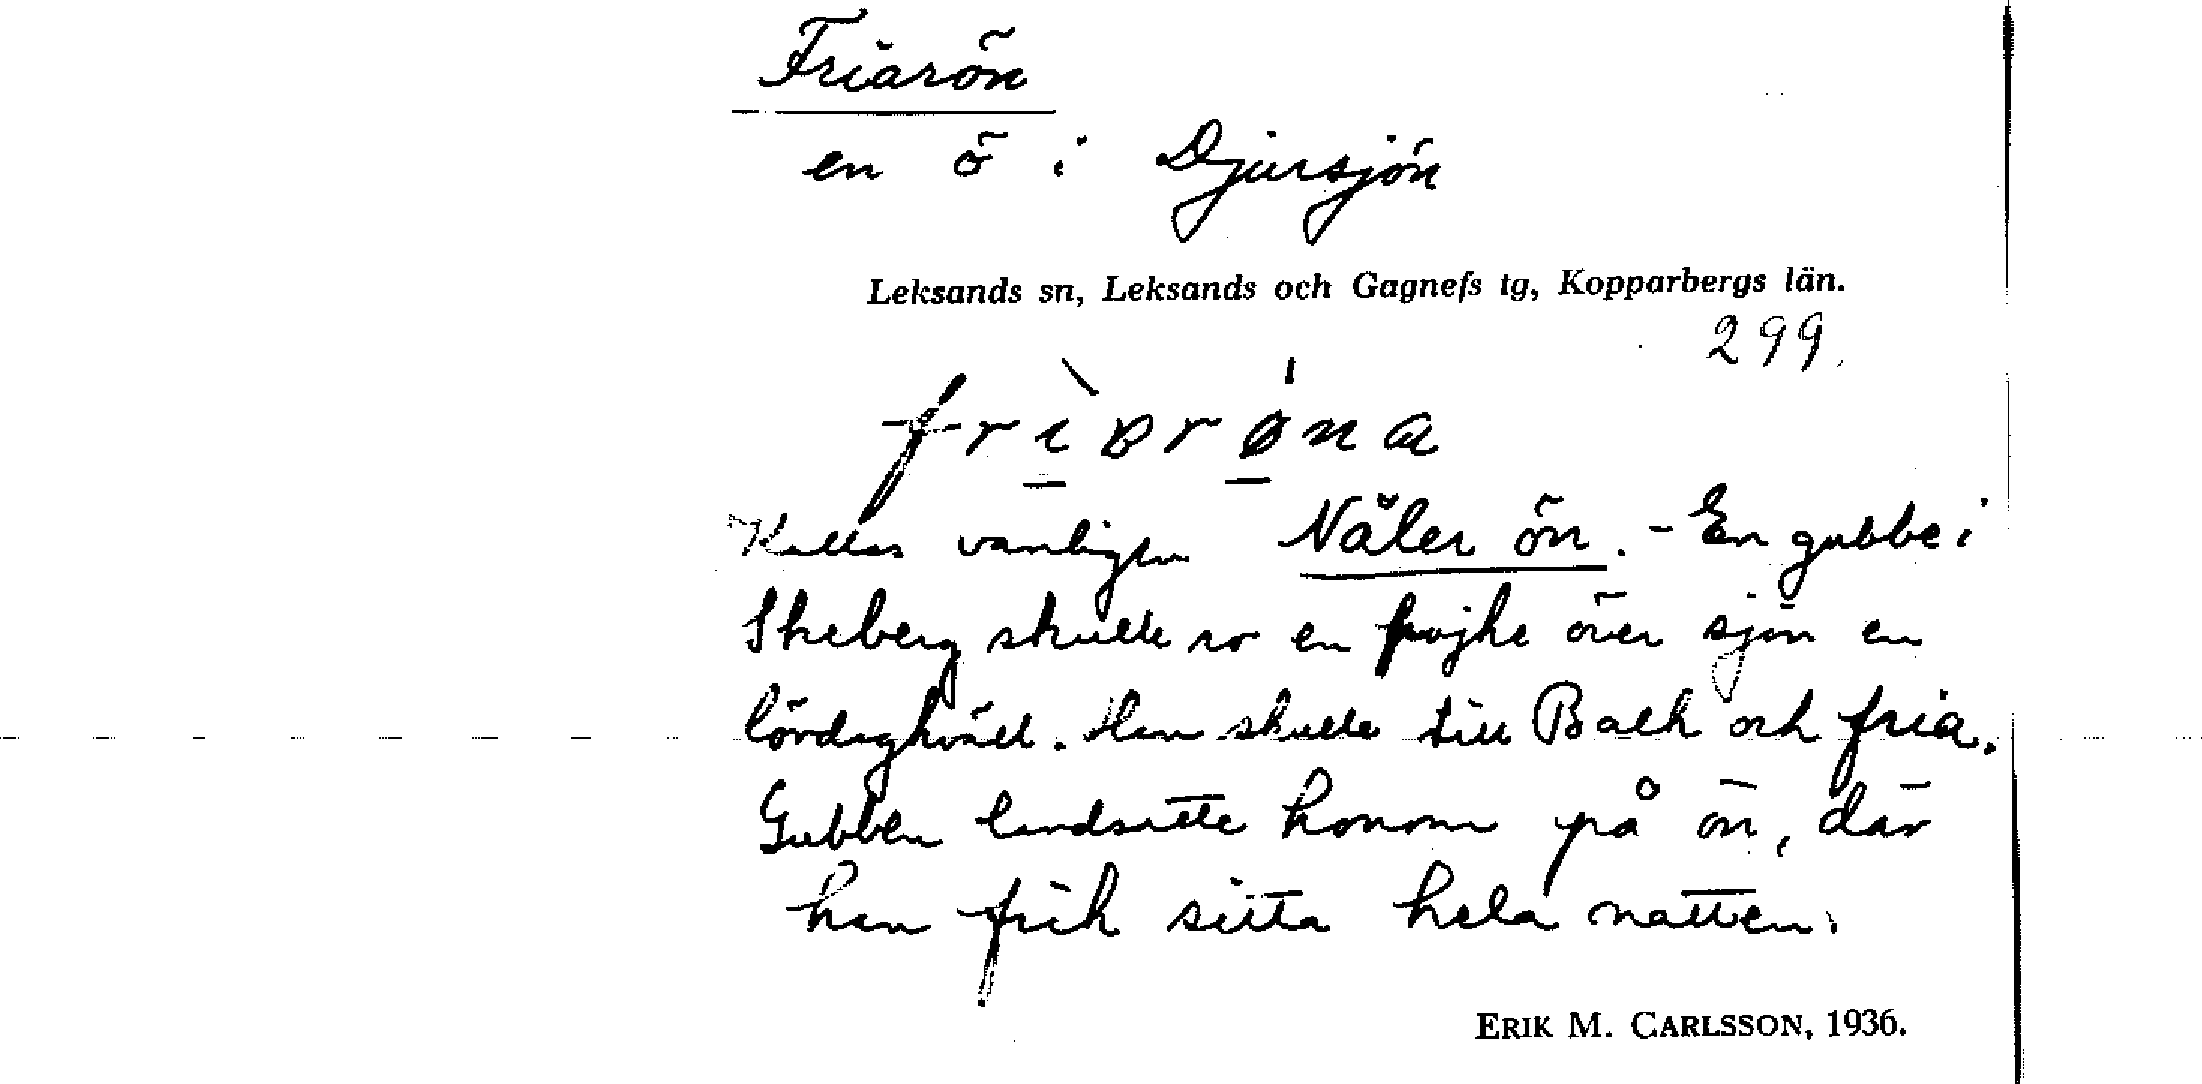 Friarön
en ö i Djursjön
Leksands sn, Leksands och Gagnefs tg, Kopparbergs län.
299.
Kallas vanligen Nåler ön. - En gubbe i
Skeberg skulle ro en pojke över sjön en
lördagkväll. Han skulle till Balk och fria.
Gubben landsatte honom på ön, där
han fick sitta hela natten.
ERIK M. CARLSSON, 1936.